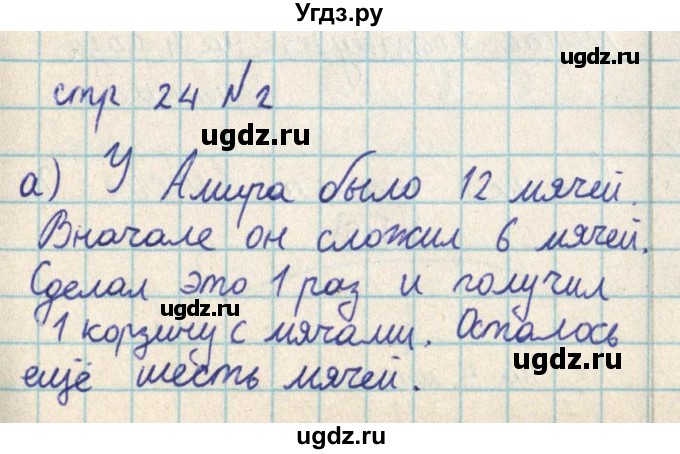 Угдз.ру
стр 24 №2
ugdz.ru
ugdz.ru
а) У Амира было 12 мячей.
Вначале он сложил 6 мячей.
ugdz.ru
Сделал это 1 раз и получил
ugdz.ru
1 корзину с мячами. Осталось
ugdz.ru
ещё шесть мячей.
ugdz.ru